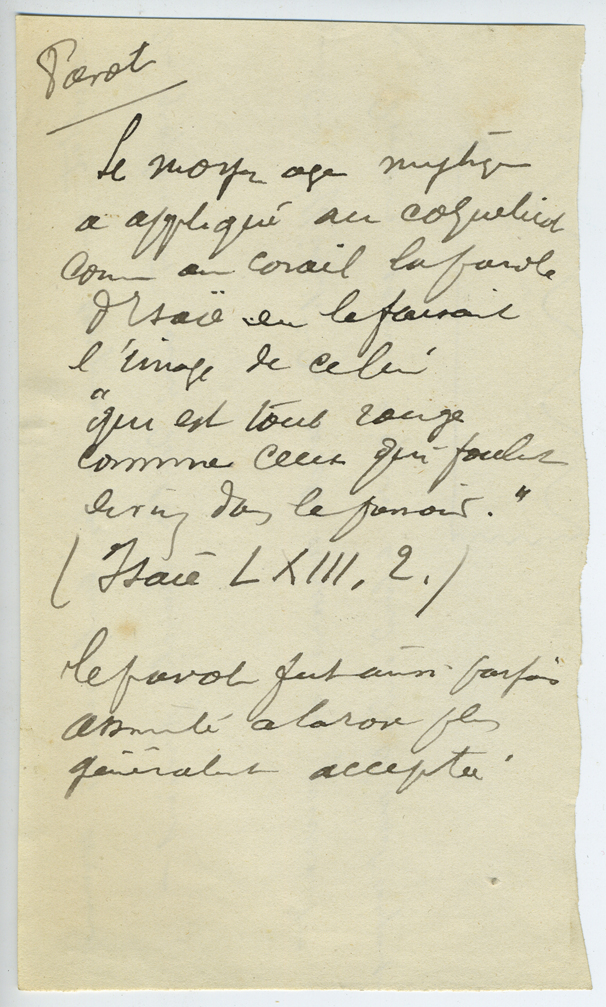 Pavot
Le moyen age mystique
a appliqué au coquelicot
comme au corail la parole
d'Isaïe en le faisant
l'image de celui
"qui est tout rouge
comme ceux qui foulent
le vin dans le pressoir."
(Isaïe LXIII, 2.)
Le pavot fut aussi parfois
assimilé a la rose plus
généralement acceptée